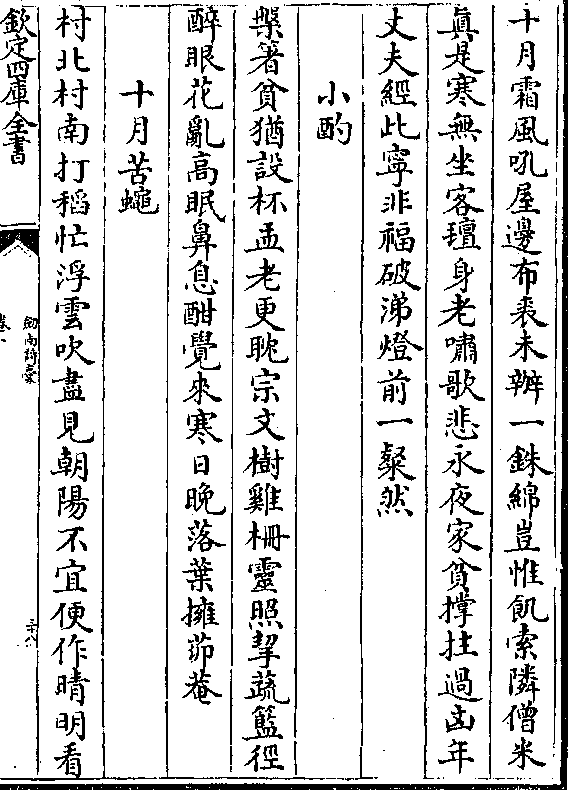 十月霜風吼屋邊布裘未辦一銖綿豈惟飢索隣僧米
真是寒無坐客氊身老嘯歌悲永夜家貧撑拄過凶年
丈夫經此寧非福破涕燈前一粲然
小酌
槃箸貧猶設杯盂老更耽宗文樹雞栅靈照挈蔬籃徑
醉眼花亂高眠鼻息酣覺來寒日晚落葉擁茆菴
十月苦蠅
村北村南打稻忙浮雲吹盡見朝陽不宜便作晴明看
欽定四庫全書
劒南詩稾
卷一
三十八